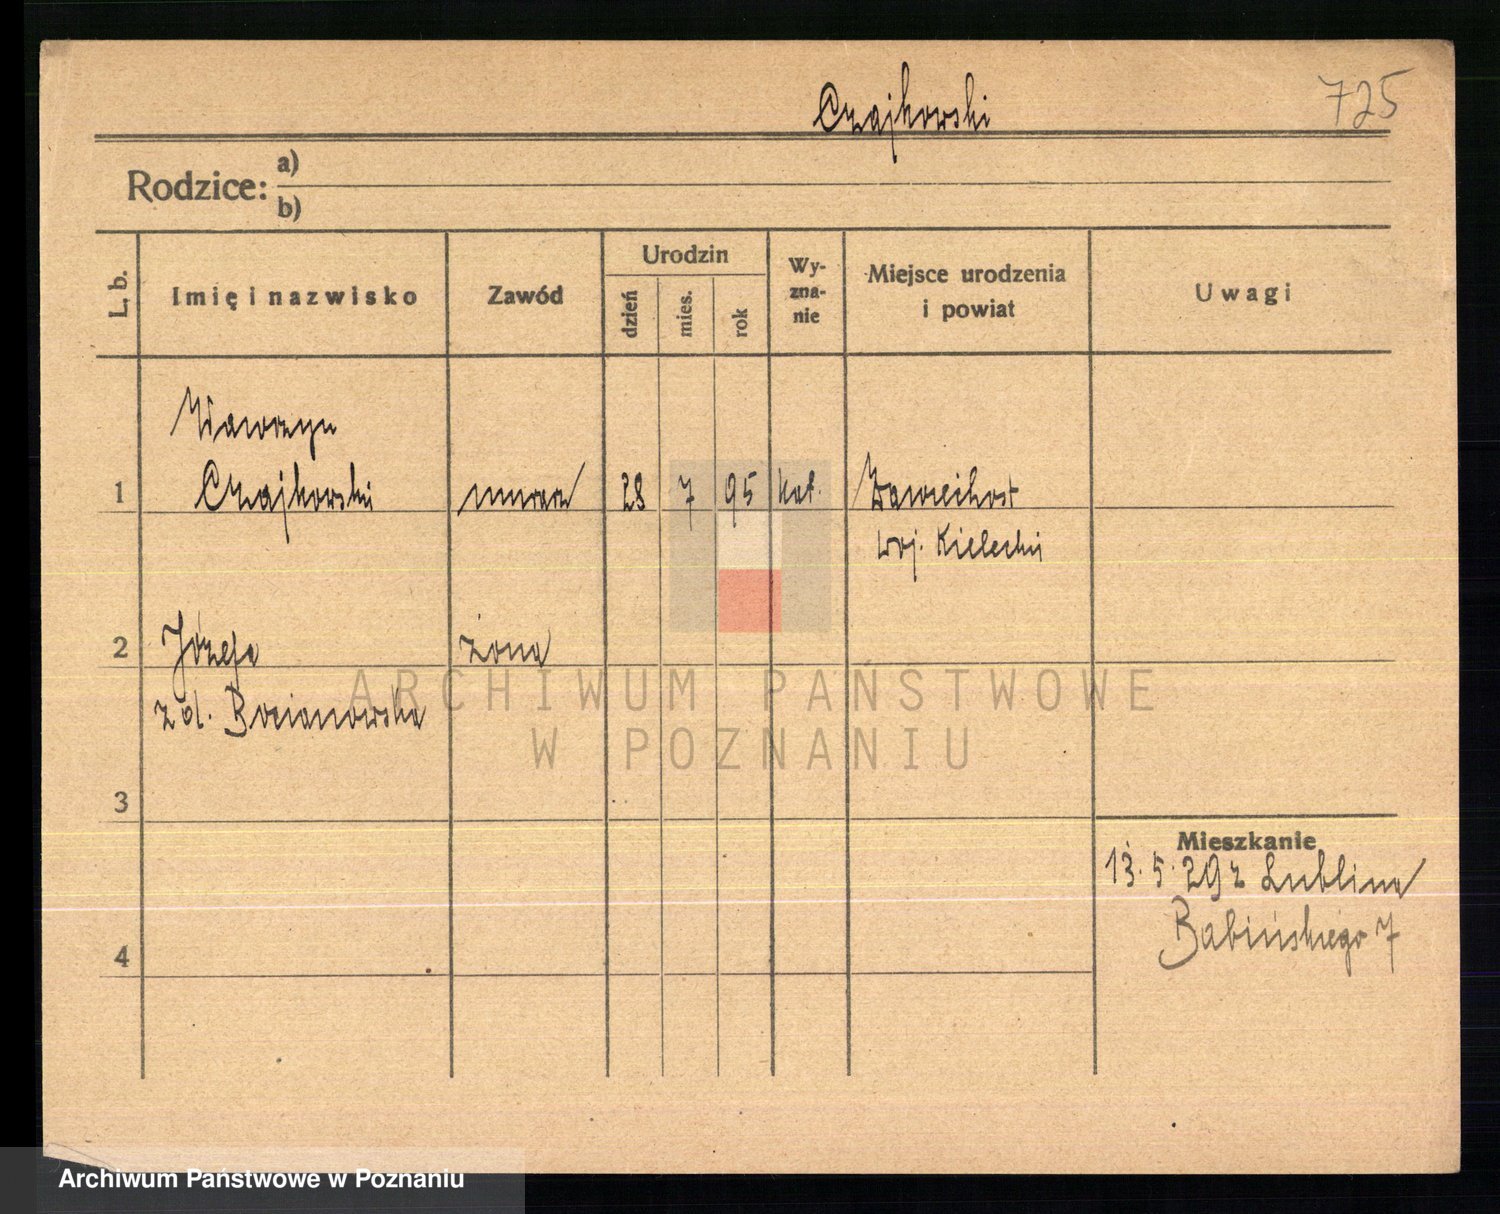 Czajkowski
725
Rodzice: a)
b)
L. b.
Imię i nazwisko
Zawód
Urodzin
dzień
mies.
rok
Wy-
zna-
nie
Miejsce urodzenia
i powiat
Uwagi
Wawrzyn
1 Czajkowski murarz 28 7 95 kat. Zawichost
woj. Kielecki
2 Józefa żona
z d. Bocianowska
3
Mieszkanie
13.5.29 z Lublina
Babińskiego 7
4
ARCHIWUM PAŃSTWOWE
W POZNANIU
Archiwum Państwowe w Poznaniu